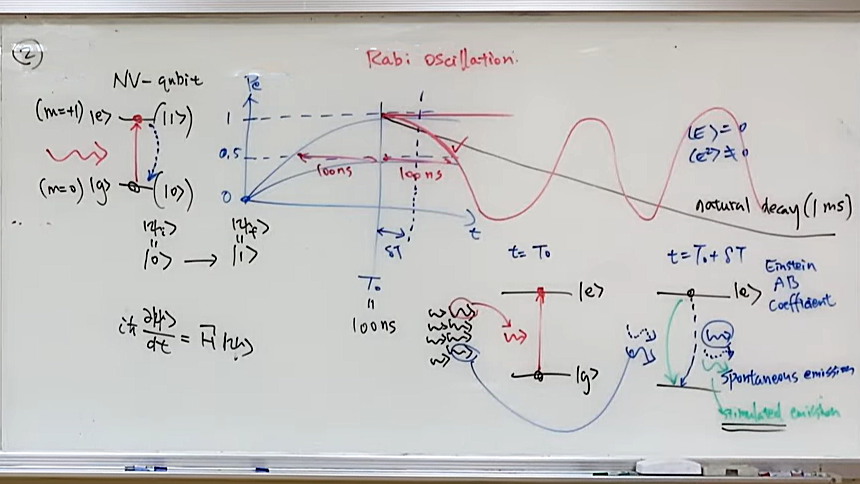 ②
Rabi Oscillation.
NV-qubit
(m=+1) |e> (|1>)
(m=0) |g> (|0>)
|ψi> |ψf>
|0> → |1>
iħ ∂|ψ>/dt = H|ψ>
Pe
1
0.5
0
100ns 100ns
t
δT
T₀
=
100ns
⟨E⟩ = 0
⟨E²⟩ ≠ 0
natural decay (1 ms)
t = T₀
|e>
|g>
t = T₀ + δT
Einstein
AB
Coefficient
|e>
Spontaneous emission
stimulated emission